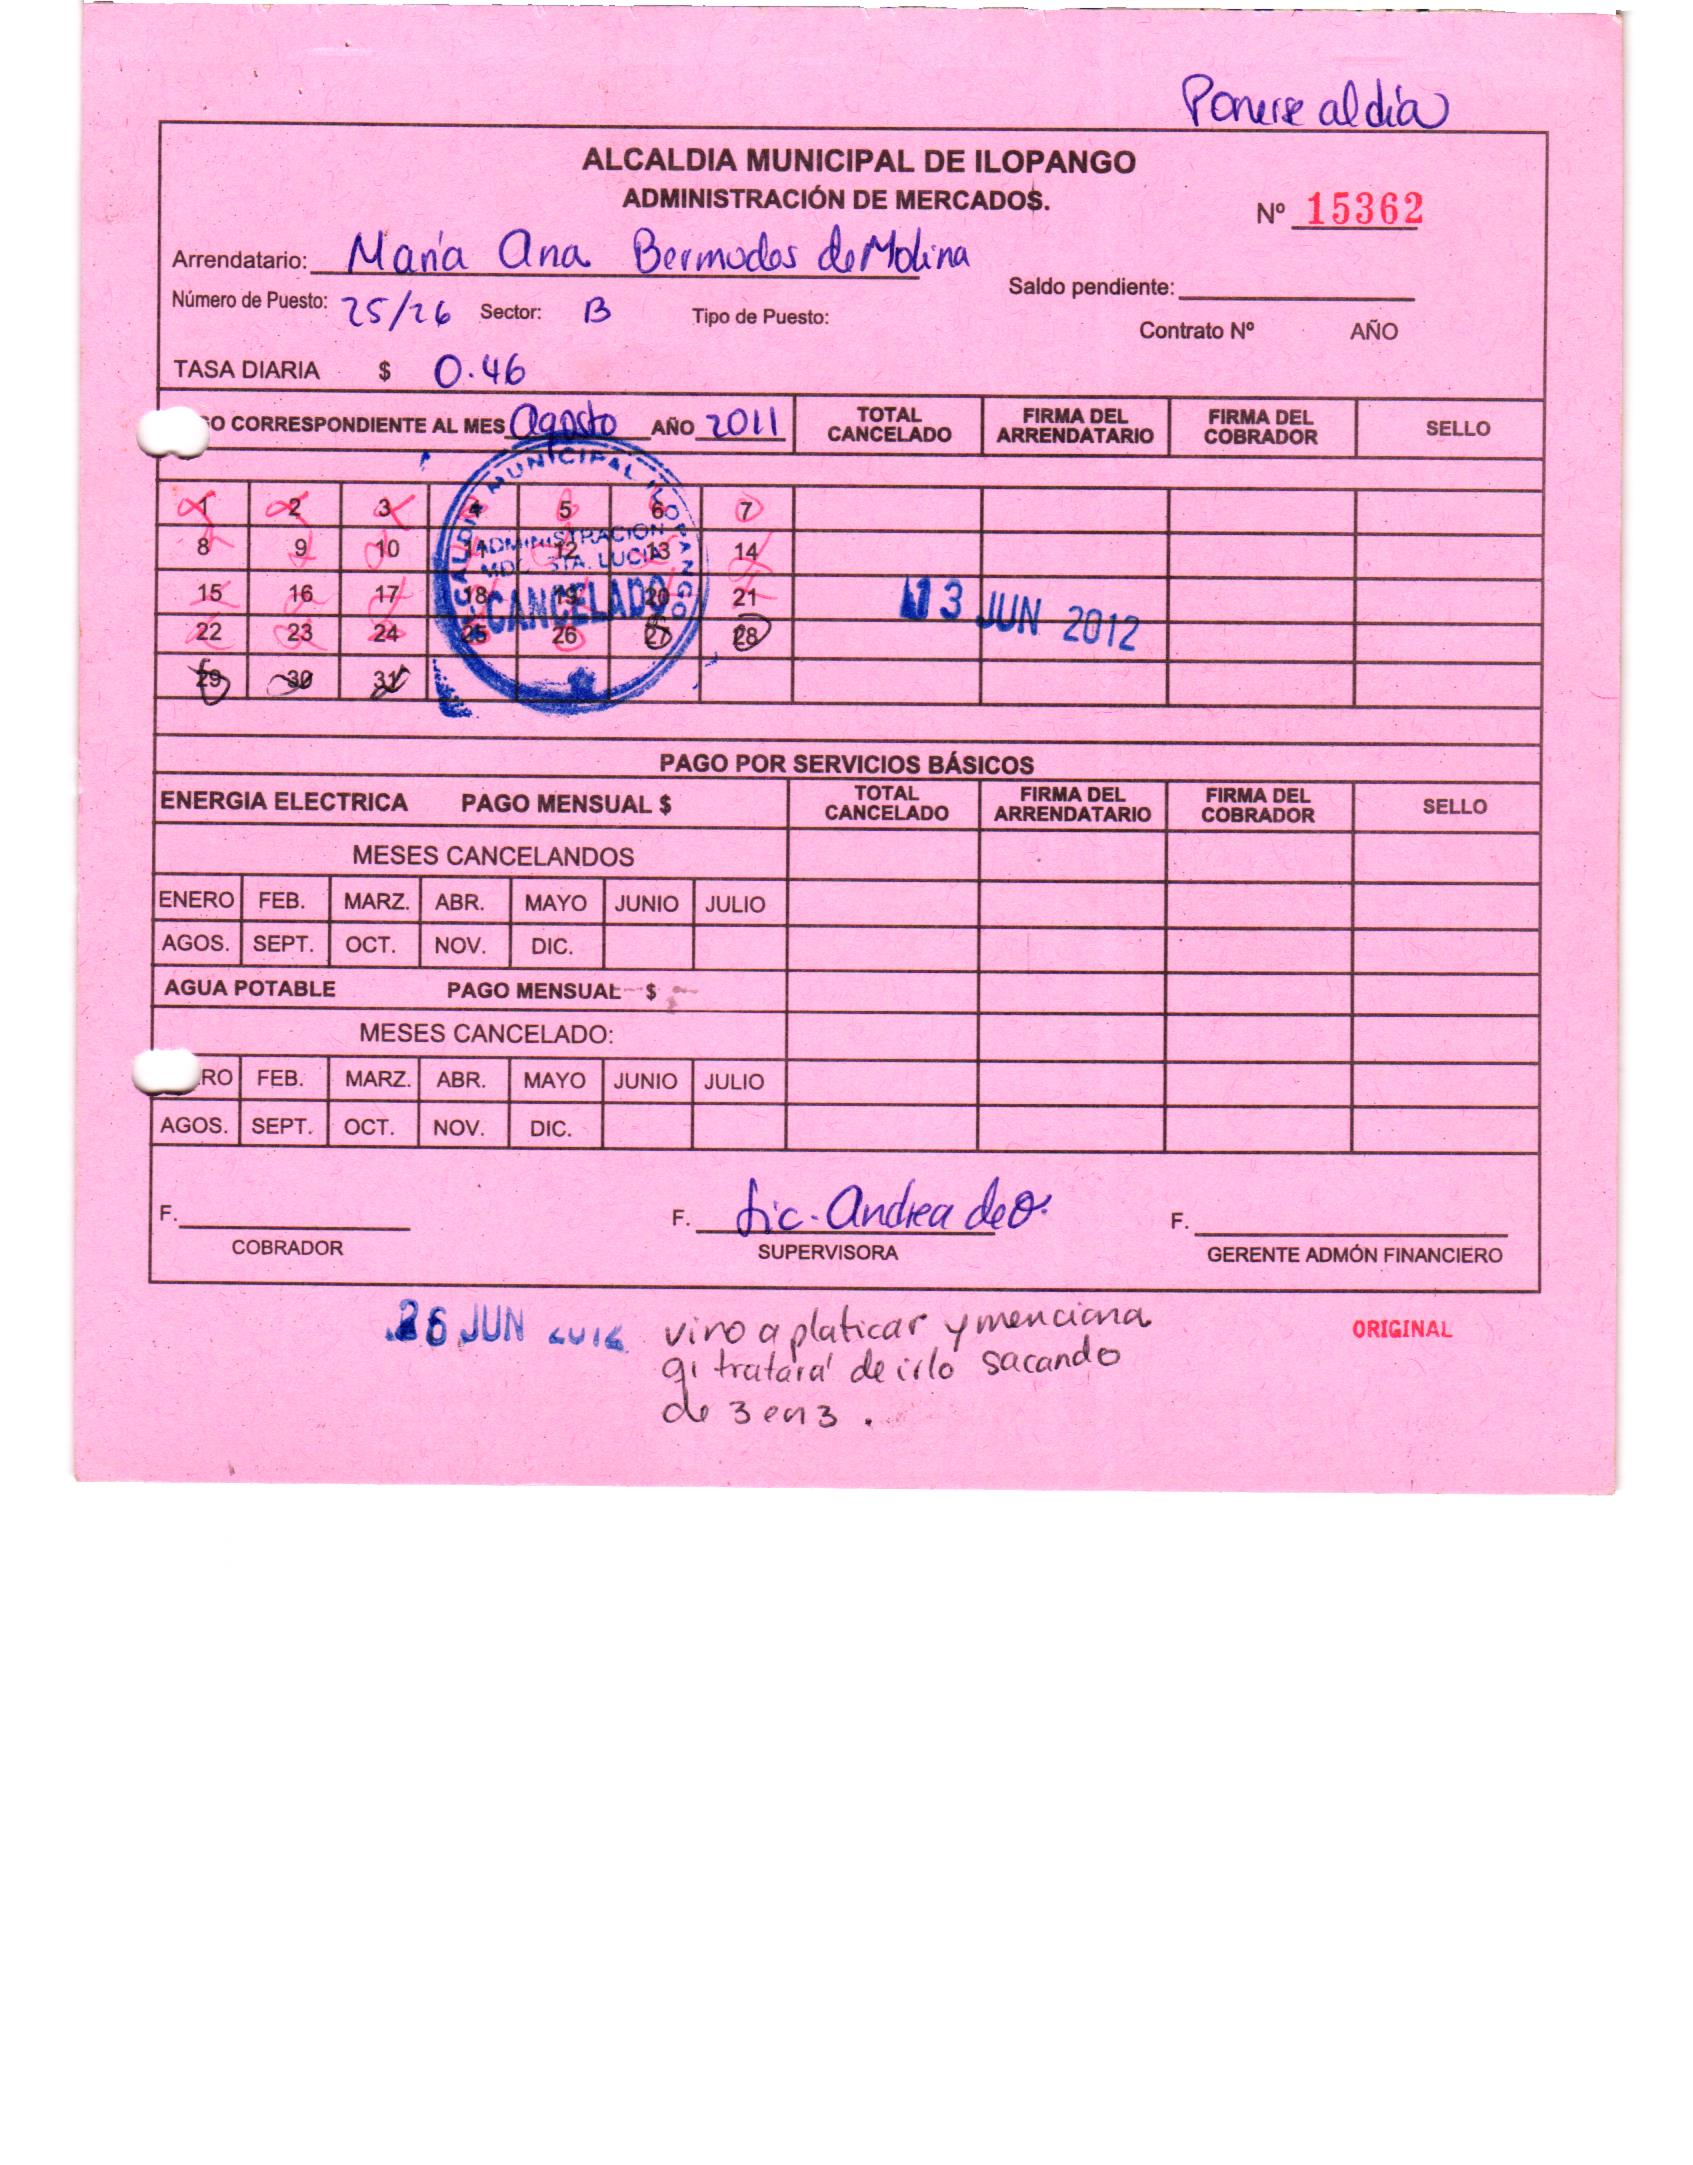 Ponerse al día
ALCALDIA MUNICIPAL DE ILOPANGO
ADMINISTRACIÓN DE MERCADOS.
Nº 15362
Arrendatario: María Ana Bermudos de Molina
Saldo pendiente:
Número de Puesto: 25/26 Sector: B Tipo de Puesto:
Contrato Nº AÑO
TASA DIARIA $ 0.46
O CORRESPONDIENTE AL MES Agosto AÑO 2011 TOTAL CANCELADO FIRMA DEL ARRENDATARIO FIRMA DEL COBRADOR SELLO
1 2 3 4 5 6 7
8 9 10 11 12 13 14
15 16 17 18 19 20 21
22 23 24 25 26 27 28
29 30 31
ALCALDIA MUNICIPAL ILOPANGO
ADMINISTRACION
STA. LUCIA
CANCELADO
13 JUN 2012
PAGO POR SERVICIOS BÁSICOS
ENERGIA ELECTRICA PAGO MENSUAL $ TOTAL CANCELADO FIRMA DEL ARRENDATARIO FIRMA DEL COBRADOR SELLO
MESES CANCELANDOS
ENERO FEB. MARZ. ABR. MAYO JUNIO JULIO
AGOS. SEPT. OCT. NOV. DIC.
AGUA POTABLE PAGO MENSUAL $
MESES CANCELADO:
RO FEB. MARZ. ABR. MAYO JUNIO JULIO
AGOS. SEPT. OCT. NOV. DIC.
F. F. Lic. Andrea de O. F.
COBRADOR SUPERVISORA GERENTE ADMÓN FINANCIERO
26 JUN 2012 vino a platicar y menciona
ORIGINAL
qi tratará de irlo sacando
de 3 en 3.